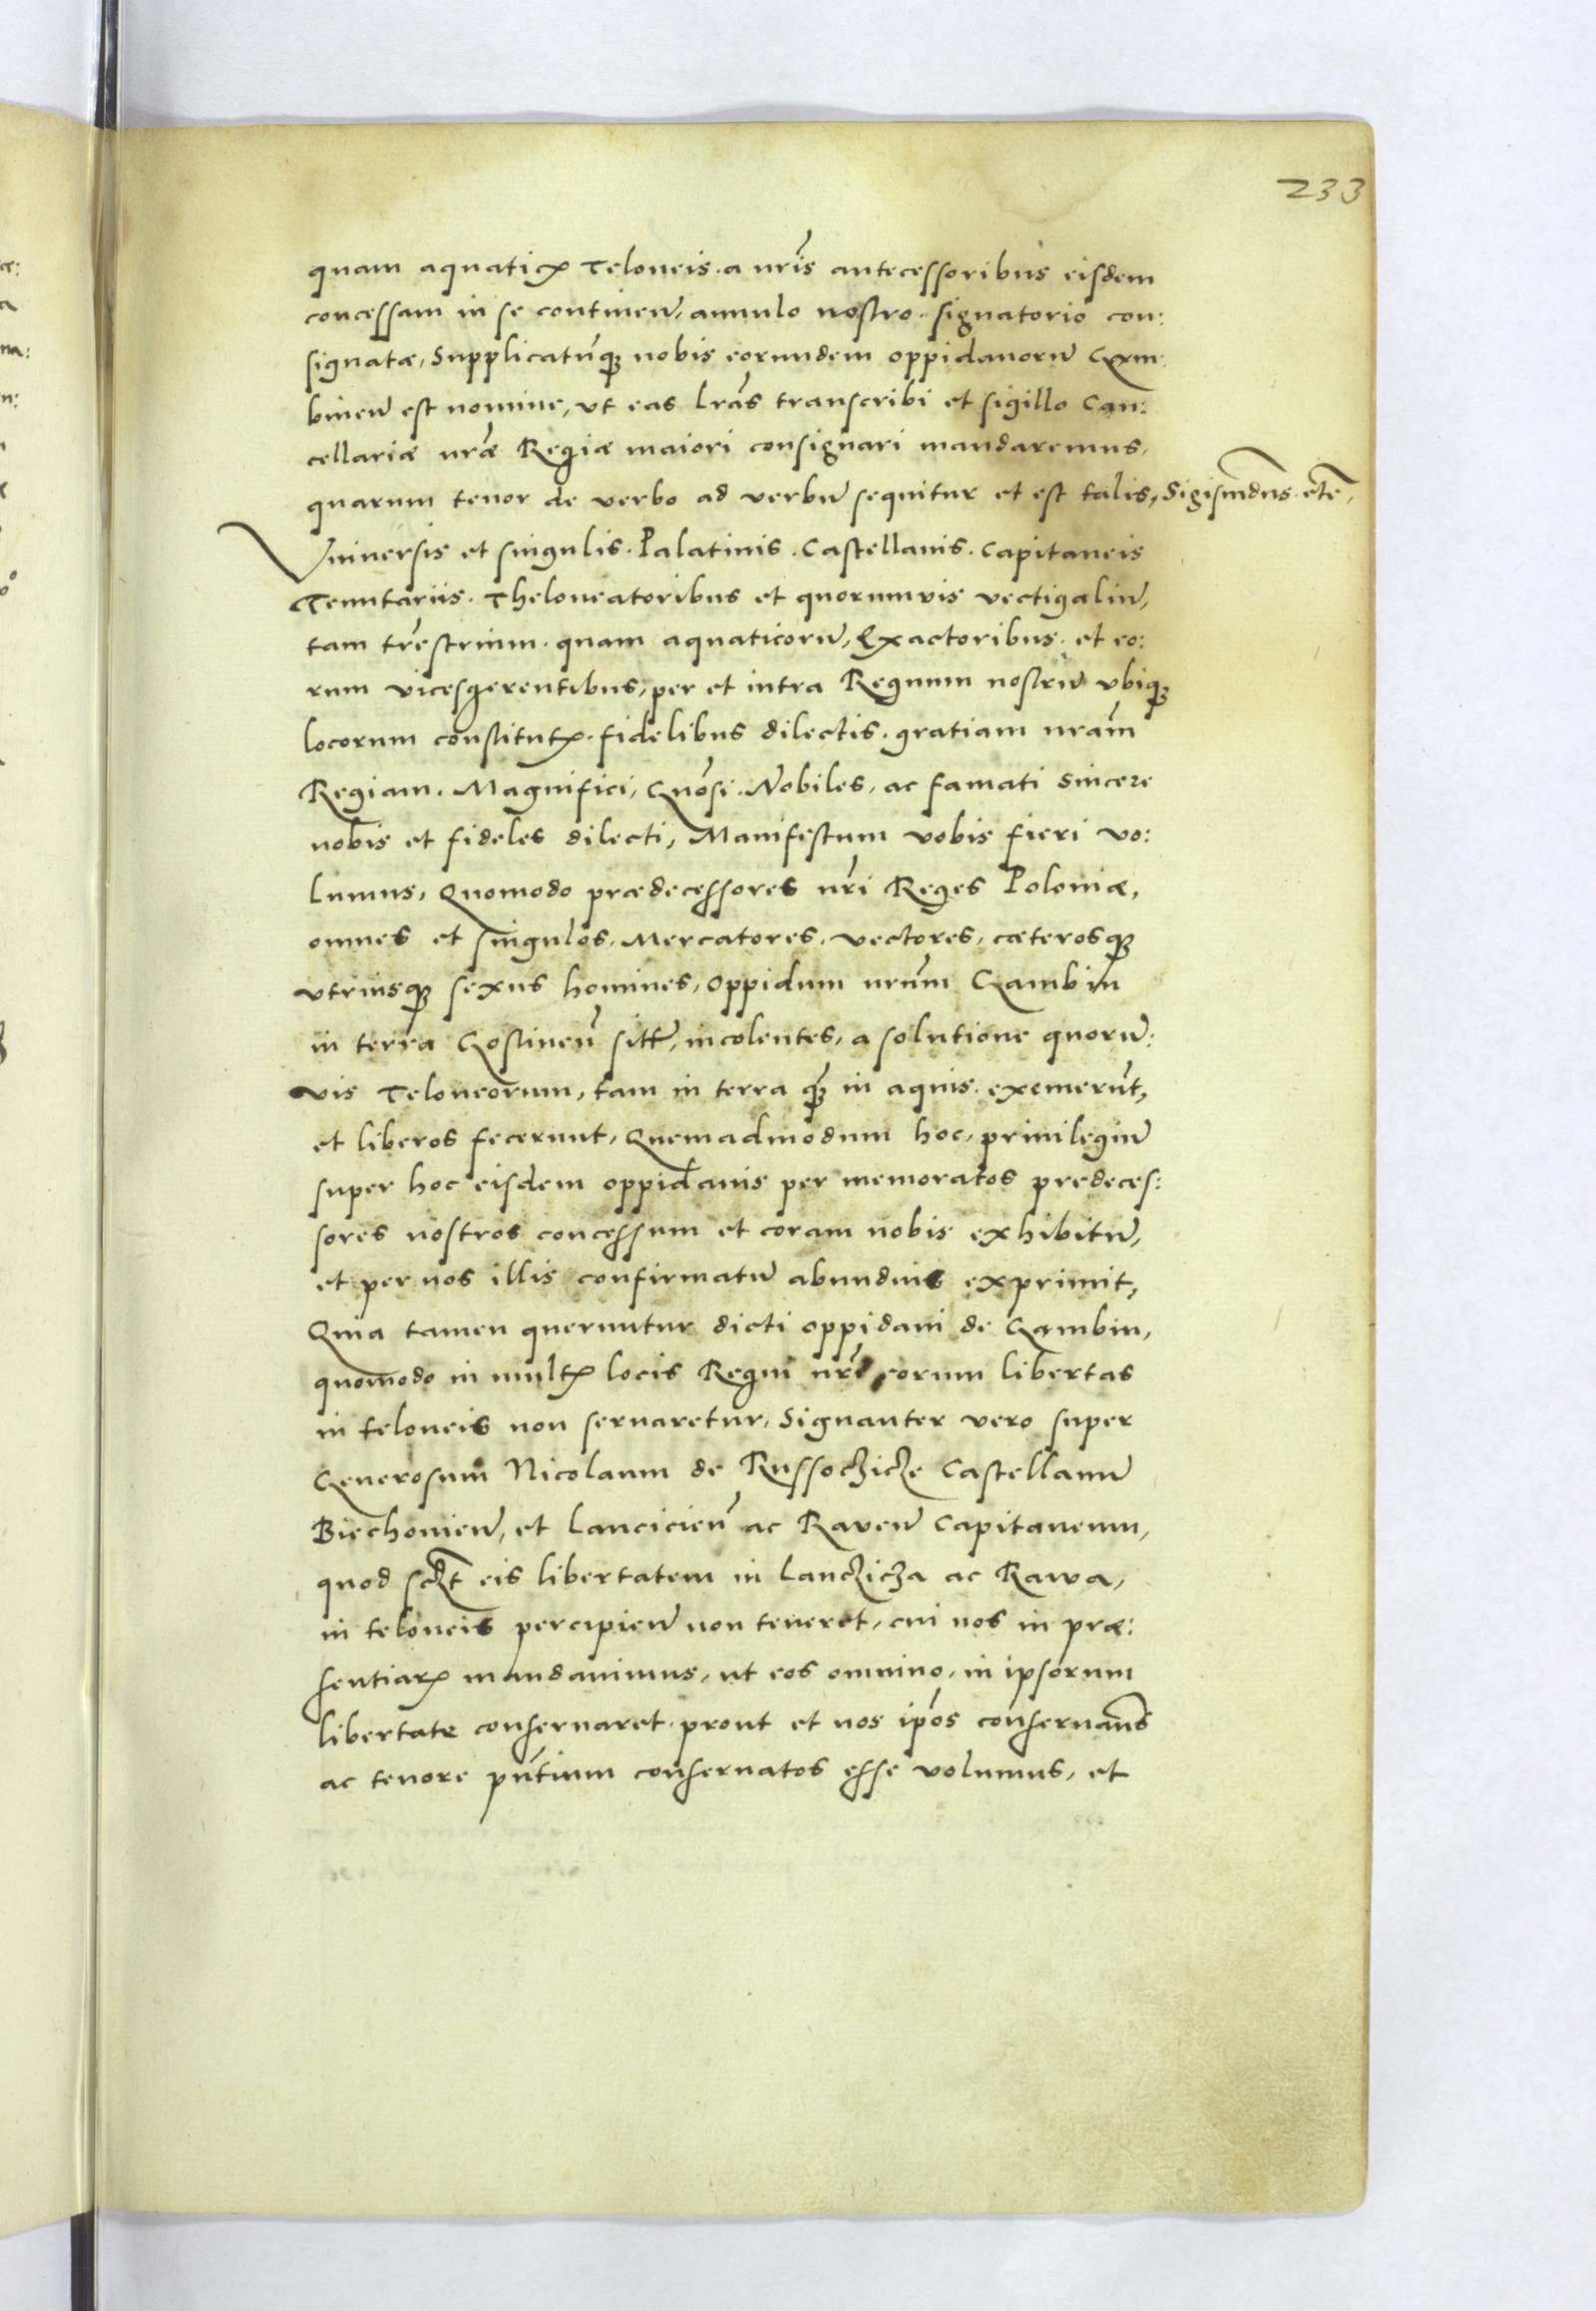 233
quam aquaticꝭ Teloneis. a nr̃is antecessoribus eisdem
concessam in se continen̄, annulo nostro signatorio con:
signatæ, Supplicatūqꝫ nobis eorundem oppidanorū Gam:
binen̄ est nomine, vt eas lr̃as transcribi et sigillo Can:
cellariæ nr̃æ Regiæ maiori consignari mandaremus,
quarum tenor de verbo ad verbū sequitur et est talis, Sigismũdus etc̃.
Vniuersis et singulis. Palatinis. Castellanis. Capitaneis
Tenutariis. Theloneatoribus et quorumvis vectigaliū,
tam tr̃estrium. quam aquaticorū, Exactoribus. et eo:
rum vicesgerentibus, per et intra Regnum nostrū vbiqꝫ
locorum constitutꝭ. fidelibus dilectis. gratiam nr̃am
Regiam. Magnifici, Gnõsi. Nobiles, ac famati sincere
nobis et fideles dilecti, Manifestum vobis fieri vo:
lumus, Quomodo prædecessores nr̃i Reges Poloniæ,
omnes et singulos, Mercatores, vectores, cæterosqꝫ
vtriusqꝫ sexus homines, oppidum nr̃um Gambin
in terra Gostinen̄ sitt̃, incolentes, a solutione quorū:
vis Teloneorum, tam in terra qꝫ̃ in aquis. exemerūt,
et liberos fecerunt, Quemadmodum hoc, priuilegiū
super hoc eisdem oppidanis per memoratos predeces:
sores nostros concessum et coram nobis exhibitū,
et per nos illis confirmatū abundius exprimit,
Quia tamen queruntur dicti oppidani de Gambin,
quomodo in multꝭ locis Regni nr̃i eorum libertas
in teloneis non seruaretur, Signanter vero super
Generosum Nicolaum de Russoczicze Castellanū
Biechonien̄, et Lancicien̄ ac Raven̄ Capitaneum,
quod sczt̃ eis libertatem in Lanczicza ac Rawa,
in teloneis percipien̄ non teneret, cui nos in præ:
sentiarꝭ mandauimus, ut eos omnino, in ipsorum
libertate conseruaret. prout et nos ip̃os conseruam̃s
ac tenore pñtium conseruatos esse volumus, et